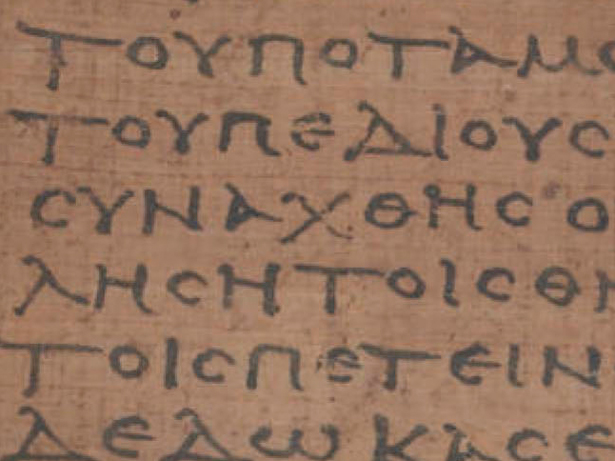 ΤΟΥΠΟΤΑΜΟ
ΤΟΥΠΕΔΙΟΥϹ
ϹΥΝΑΧΘΗϹΟ
ΛΗϹΗΤΟΙϹΘΗ
ΤΟΙϹΠΕΤΕΙΝ
ΔΕΔΩΚΑϹΕ